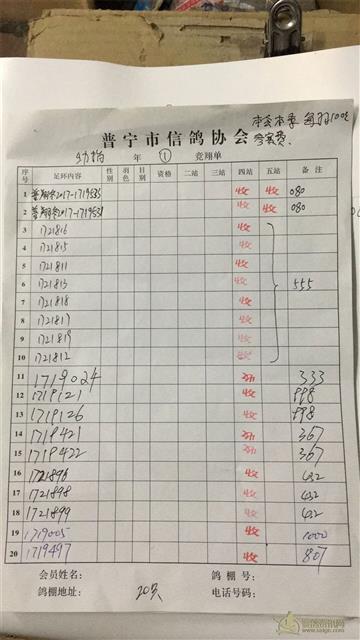 本会本季
参赛费
普宁市信鸽协会
年 ① 竞翔单
序号 足环内容 性别 羽色 目别 资格 二站 三站 四站 五站 备注
1 2017-1719535 收 收 080
2 2017-1719531 收 收 080
3 1721816 收
4 1721815 收
5 1721811 收
6 1721813 收 555
7 1721818 收
8 1721817 收
9 1721819 收
10 1721812 收
11 1719024 333
12 1719121 收 998
13 1719126 收 998
14 1719421 367
15 1719422 367
16 1721896 收 432
17 1721898 收 432
18 1721899 收 432
19 1719005 收 1000
20 1719497 收 807
会员姓名： 鸽棚号：
鸽棚地址： 20只 电话号码：